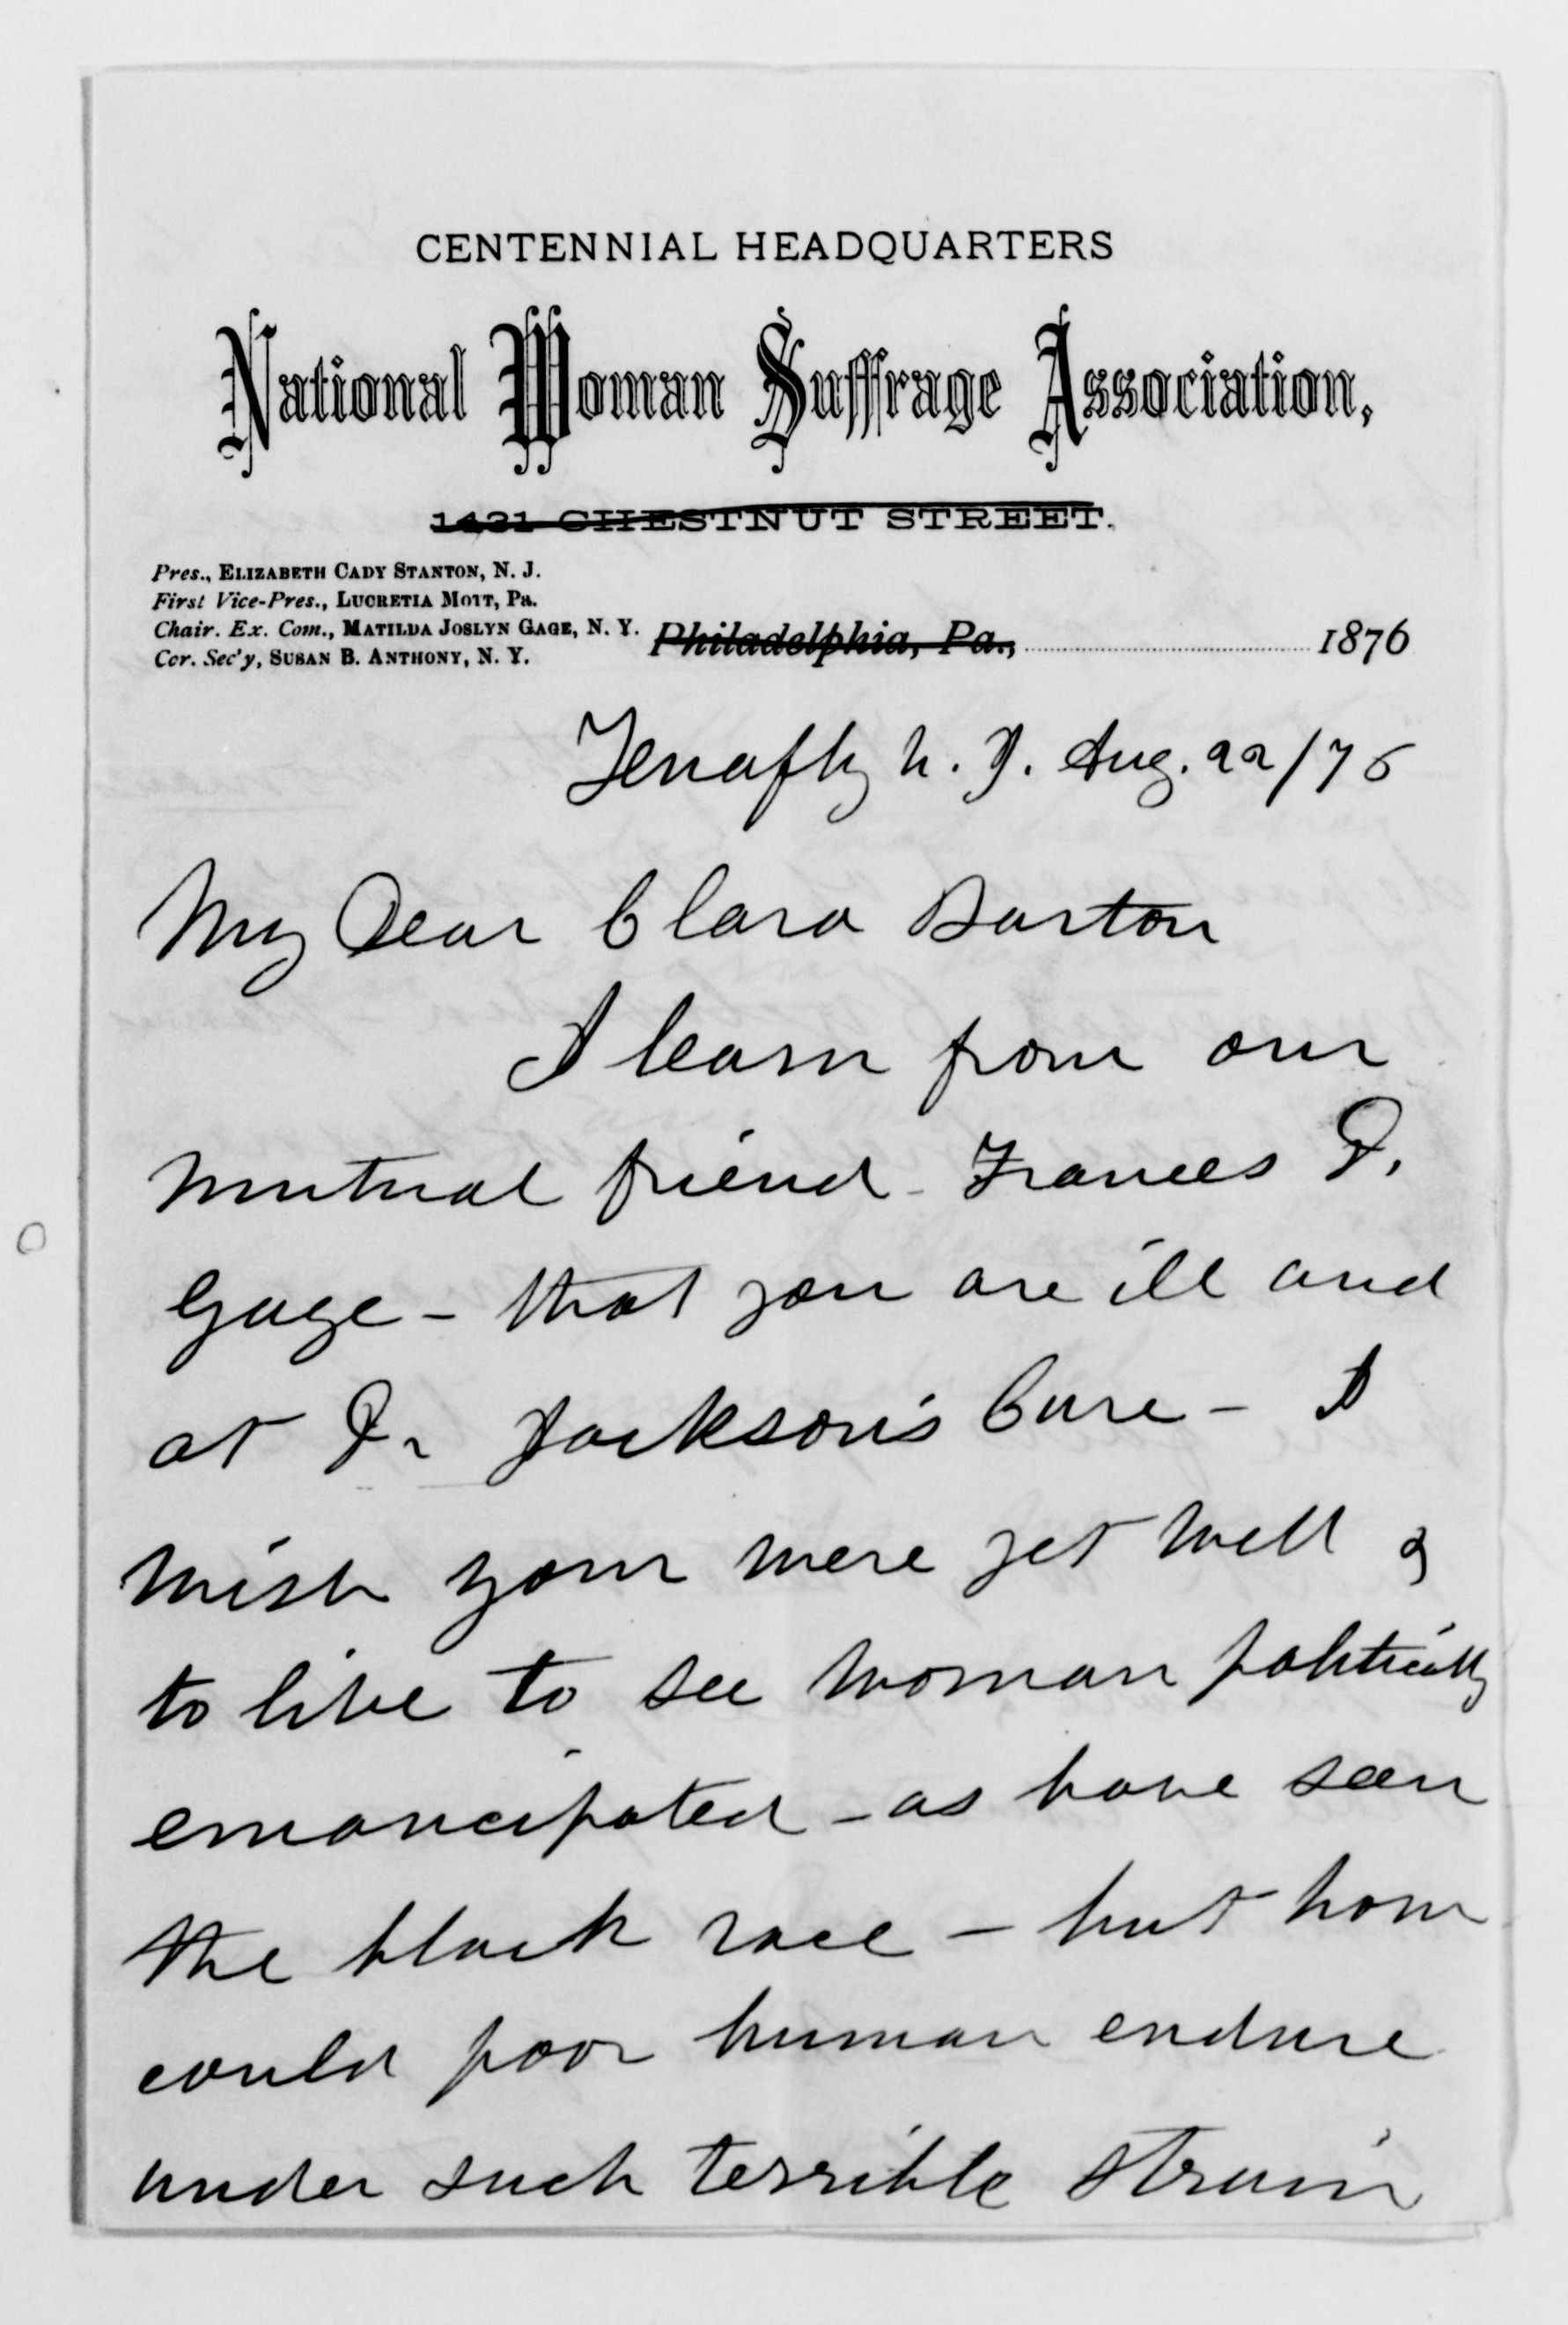 CENTENNIAL HEADQUARTERS
National Woman Suffrage Association,
1431 CHESTNUT STREET.
Pres., ELIZABETH CADY STANTON, N. J.
First Vice-Pres., LUCRETIA MOTT, Pa.
Chair. Ex. Com., MATILDA JOSLYN GAGE, N. Y.
Cor. Sec'y, SUSAN B. ANTHONY, N. Y.
Philadelphia, Pa., 1876
Tenafly N. J. Aug. 22/76
My Dear Clara Barton
I learn from our
mutual friend - Frances D.
Gage - that you are ill and
at Dr Jackson's Cure - I
wish your were yet well &
to live to see woman politically
emancipated - as have seen
the black race - but how
could poor human endure
under such terrible strain